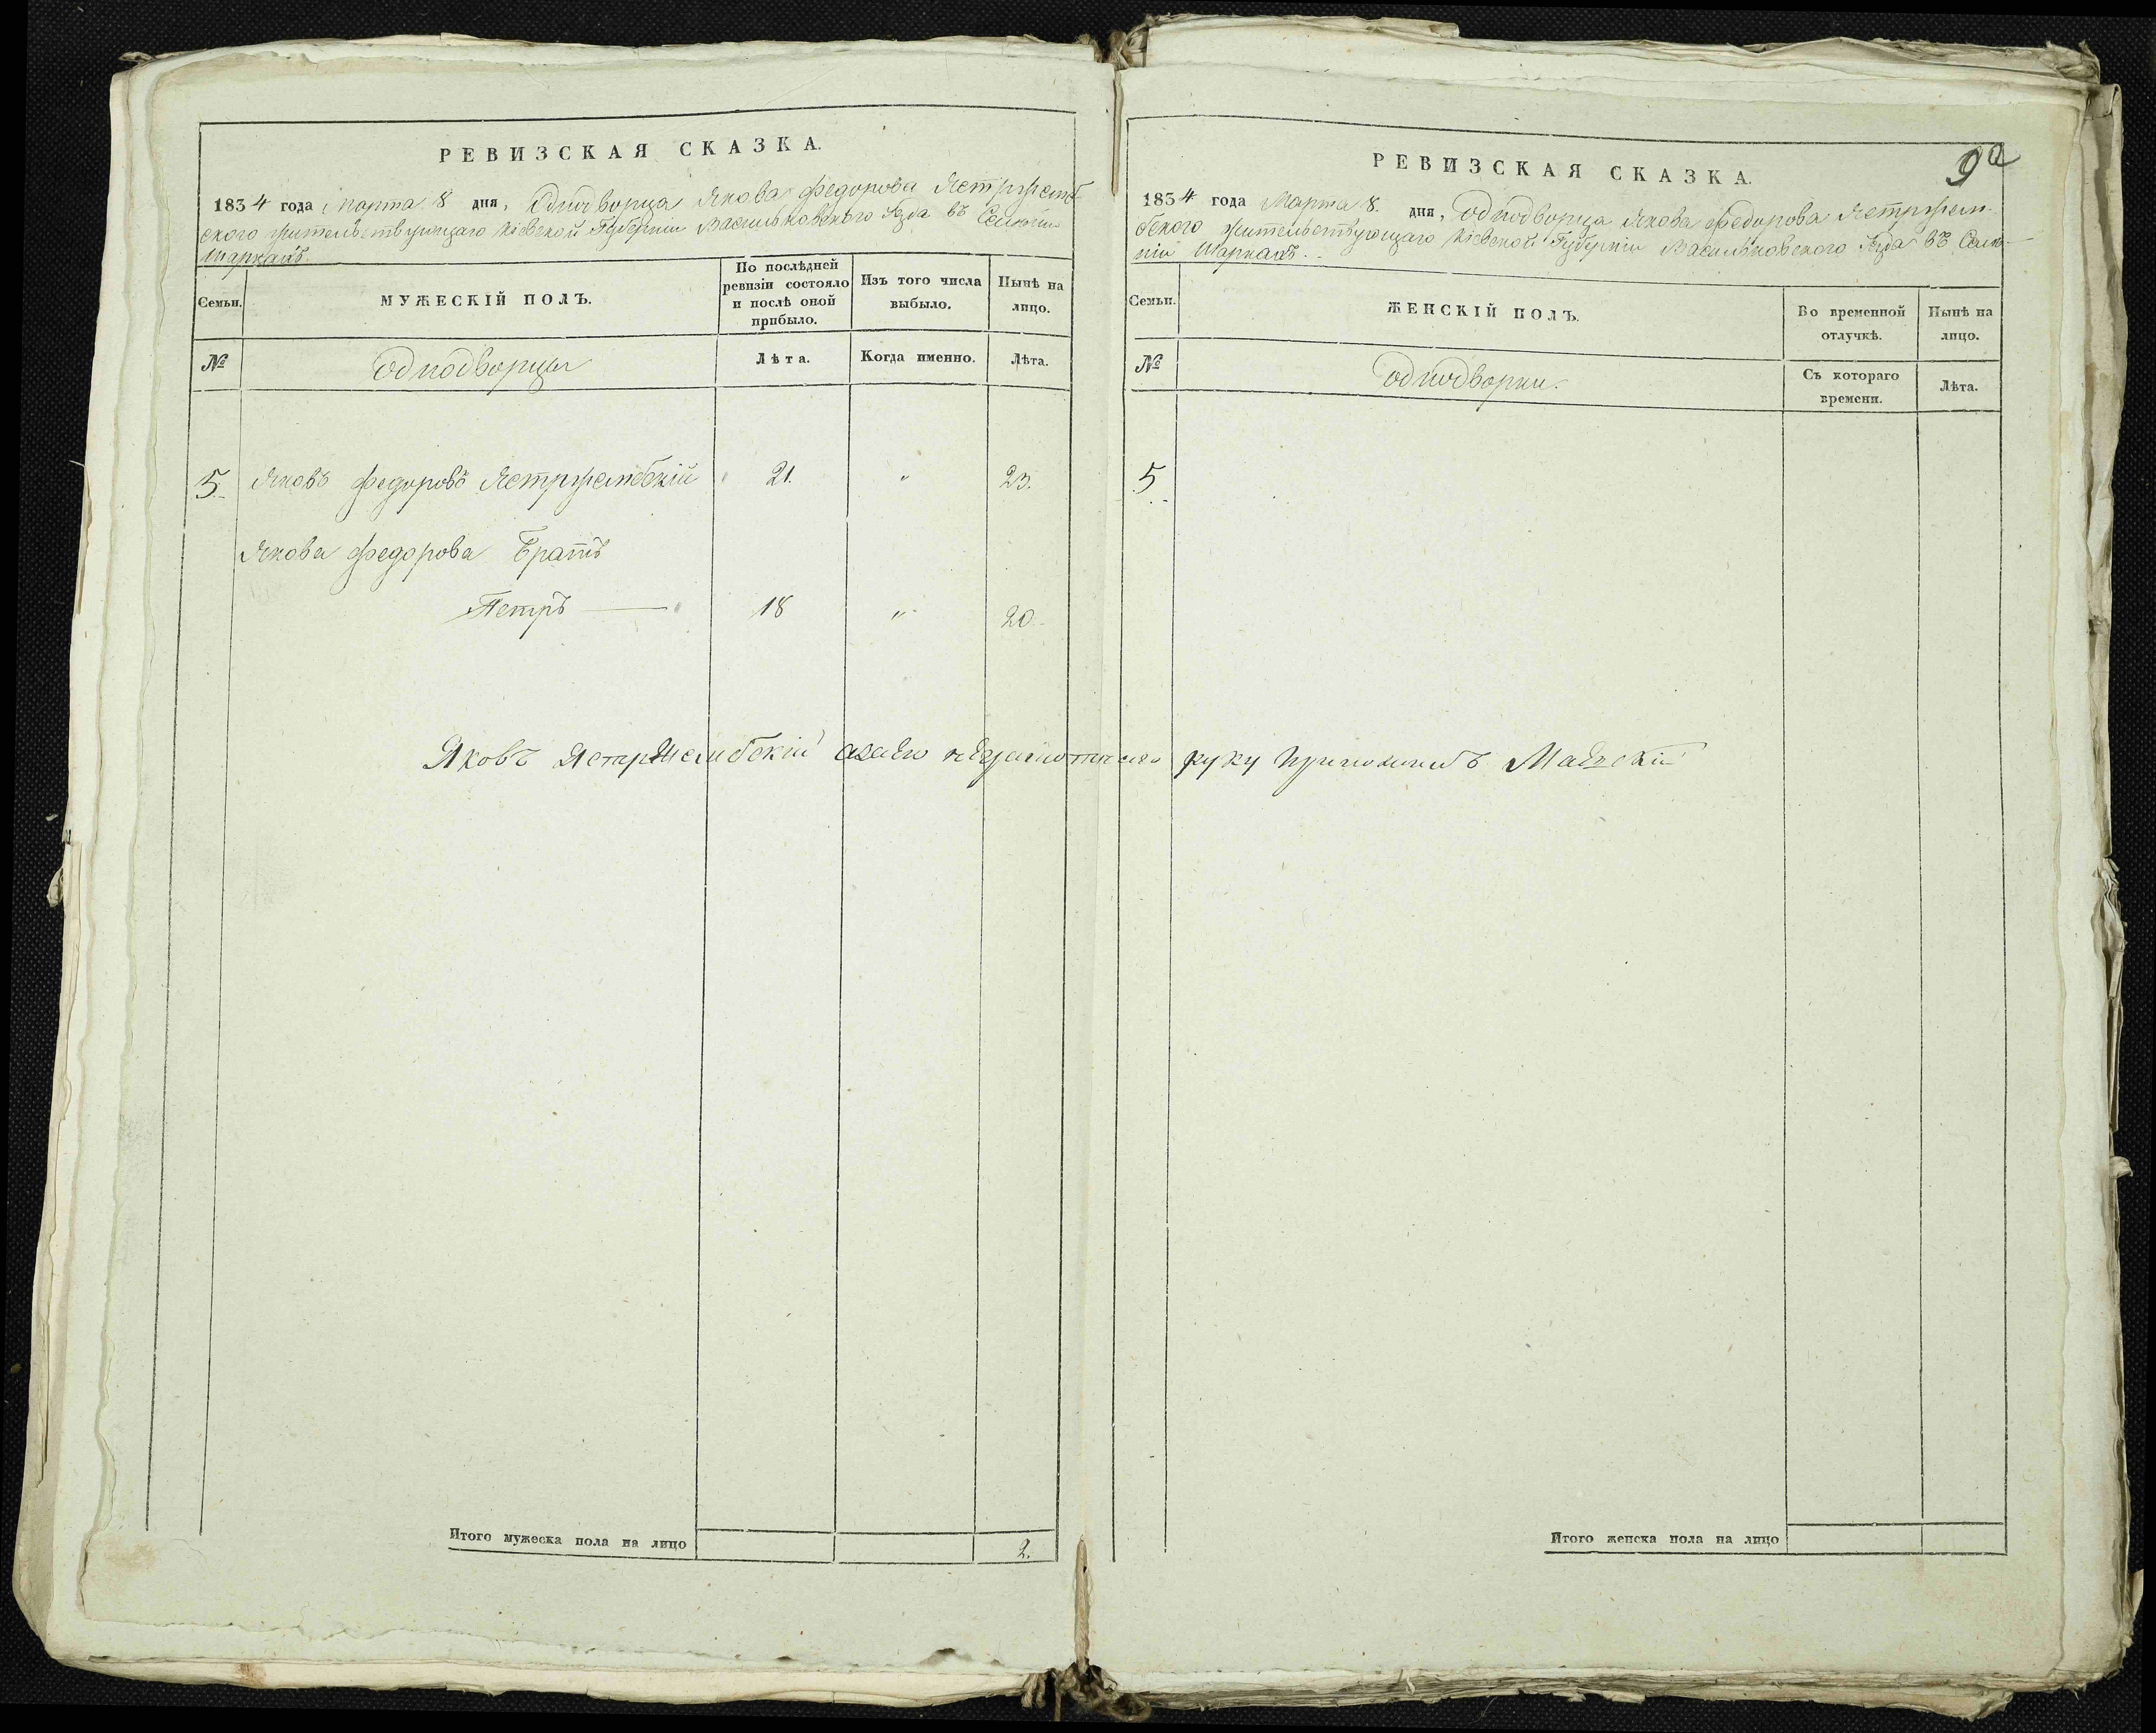 РЕВИЗСКАЯ СКАЗКА.
1834 года Марта 8 дня, Однодворца Якова Федорова Ястржемб-
ского жительствующаго Кіевской Губерніи Васильковского Уѣзда въ Селеніи
Шаркахъ.
Семьи.
МУЖЕСКІЙ ПОЛЪ.
По послѣдней
ревизіи состояло
и послѣ оной
прибыло.
Изъ того числа
выбыло.
Нынѣ на
лицо.
№
Однодворцы
Лѣта.
Когда именно.
Лѣта.
5. Яковъ Федоровъ Ястржембскій 21. " 23.
Якова Федорова Братъ
Петръ — 18 " 20.
Яковъ Ястржембскій а за его неграмотнаго руку приложилъ
Итого мужеска пола на лицо 2.
9а
РЕВИЗСКАЯ СКАЗКА.
1834 года Марта 8. дня, Однодворца Якова Федорова Ястржем-
бского жительствующаго Кіевской Губерніи Васильковского Уѣзда въ Селе-
ніи Шаркахъ.
Семьи.
ЖЕНСКІЙ ПОЛЪ.
Во временной
отлучкѣ.
Нынѣ на
лицо.
№
Однодворки.
Съ котораго
времени.
Лѣта.
5.
Итого женска пола на лицо